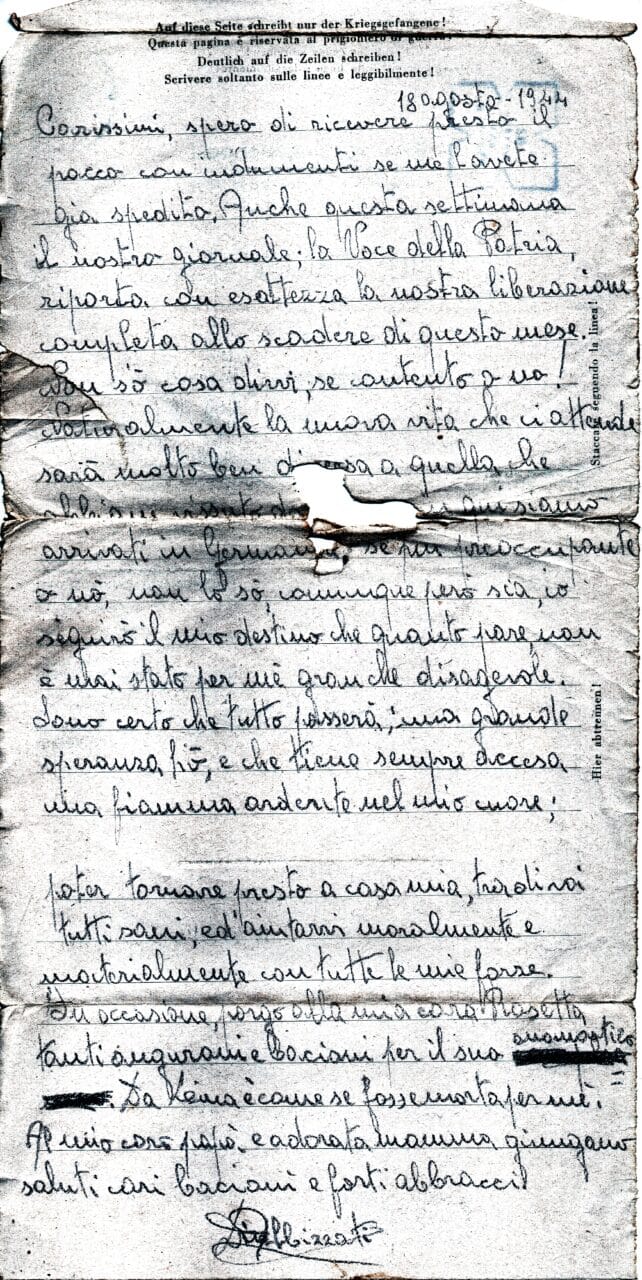 Auf diese Seite schreibt nur der Kriegsgefangene!
Questa pagina è riservata al prigioniero di guerra!
Deutlich auf die Zeilen schreiben!
Scrivere soltanto sulle linee e leggibilmente!
18 agosto - 1944
Carissimi, spero di ricevere presto il
pacco con indumenti se me l'avete
già spedito. Anche questa settimana
il nostro giornale; la Voce della Patria,
riporta con esattezza la nostra liberazione
completa allo scadere di questo mese.
Non sò cosa dirvi, se contento o no!
Naturalmente la nuova vita che ci attende
sarà molto ben diversa a quella che
abbiam vissuto qui siamo
arrivati in Germania se più preoccupante
o nò, non lo sò, comunque però sia, io
seguirò il mio destino che quanto pare, non
è mai stato per mè gran che disagevole.
Sono certo che tutto passerà; una grande
speranza hò, e che tiene sempre accesa
una fiamma ardente nel mio cuore;
poter tornare presto a casa mia, tra di voi
tutti sani, ed'aiutarvi moralmente e
materialmente con tutte le mie forze.
In occasione, porgo alla mia cara Rosetta
tanti auguroni e bacioni per il suo onomastico
. Da è come se fosse morta per mè.
Al mio caro papà, e adorata mamma giungano
saluti cari bacioni e forti abbracci.
Staccare seguendo la linea!
Hier abtrennen!